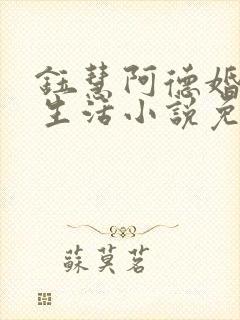 鈺慧阿德婚
生活小說免
蘇莫茗